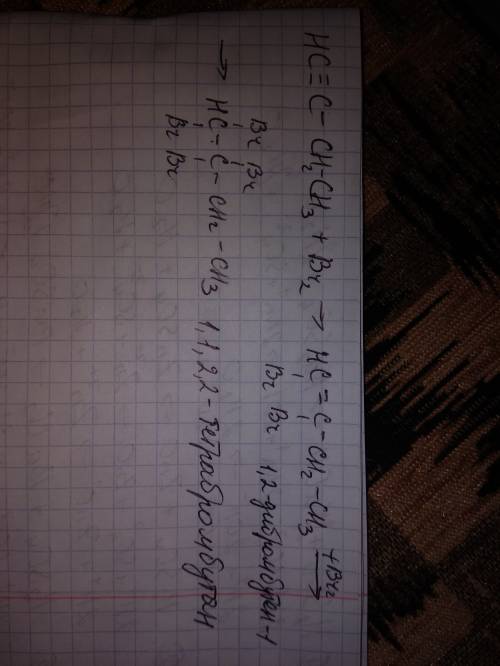 HC≡C-CH₂-CH₃ + Br₂ → HC=C-CH₂-CH₃ +Br₂ →
Br Br 1,2-дибромбутен-1
Br Br
→ HC-C-CH₂-CH₃ 1,1,2,2-тетрабромбутан
Br Br